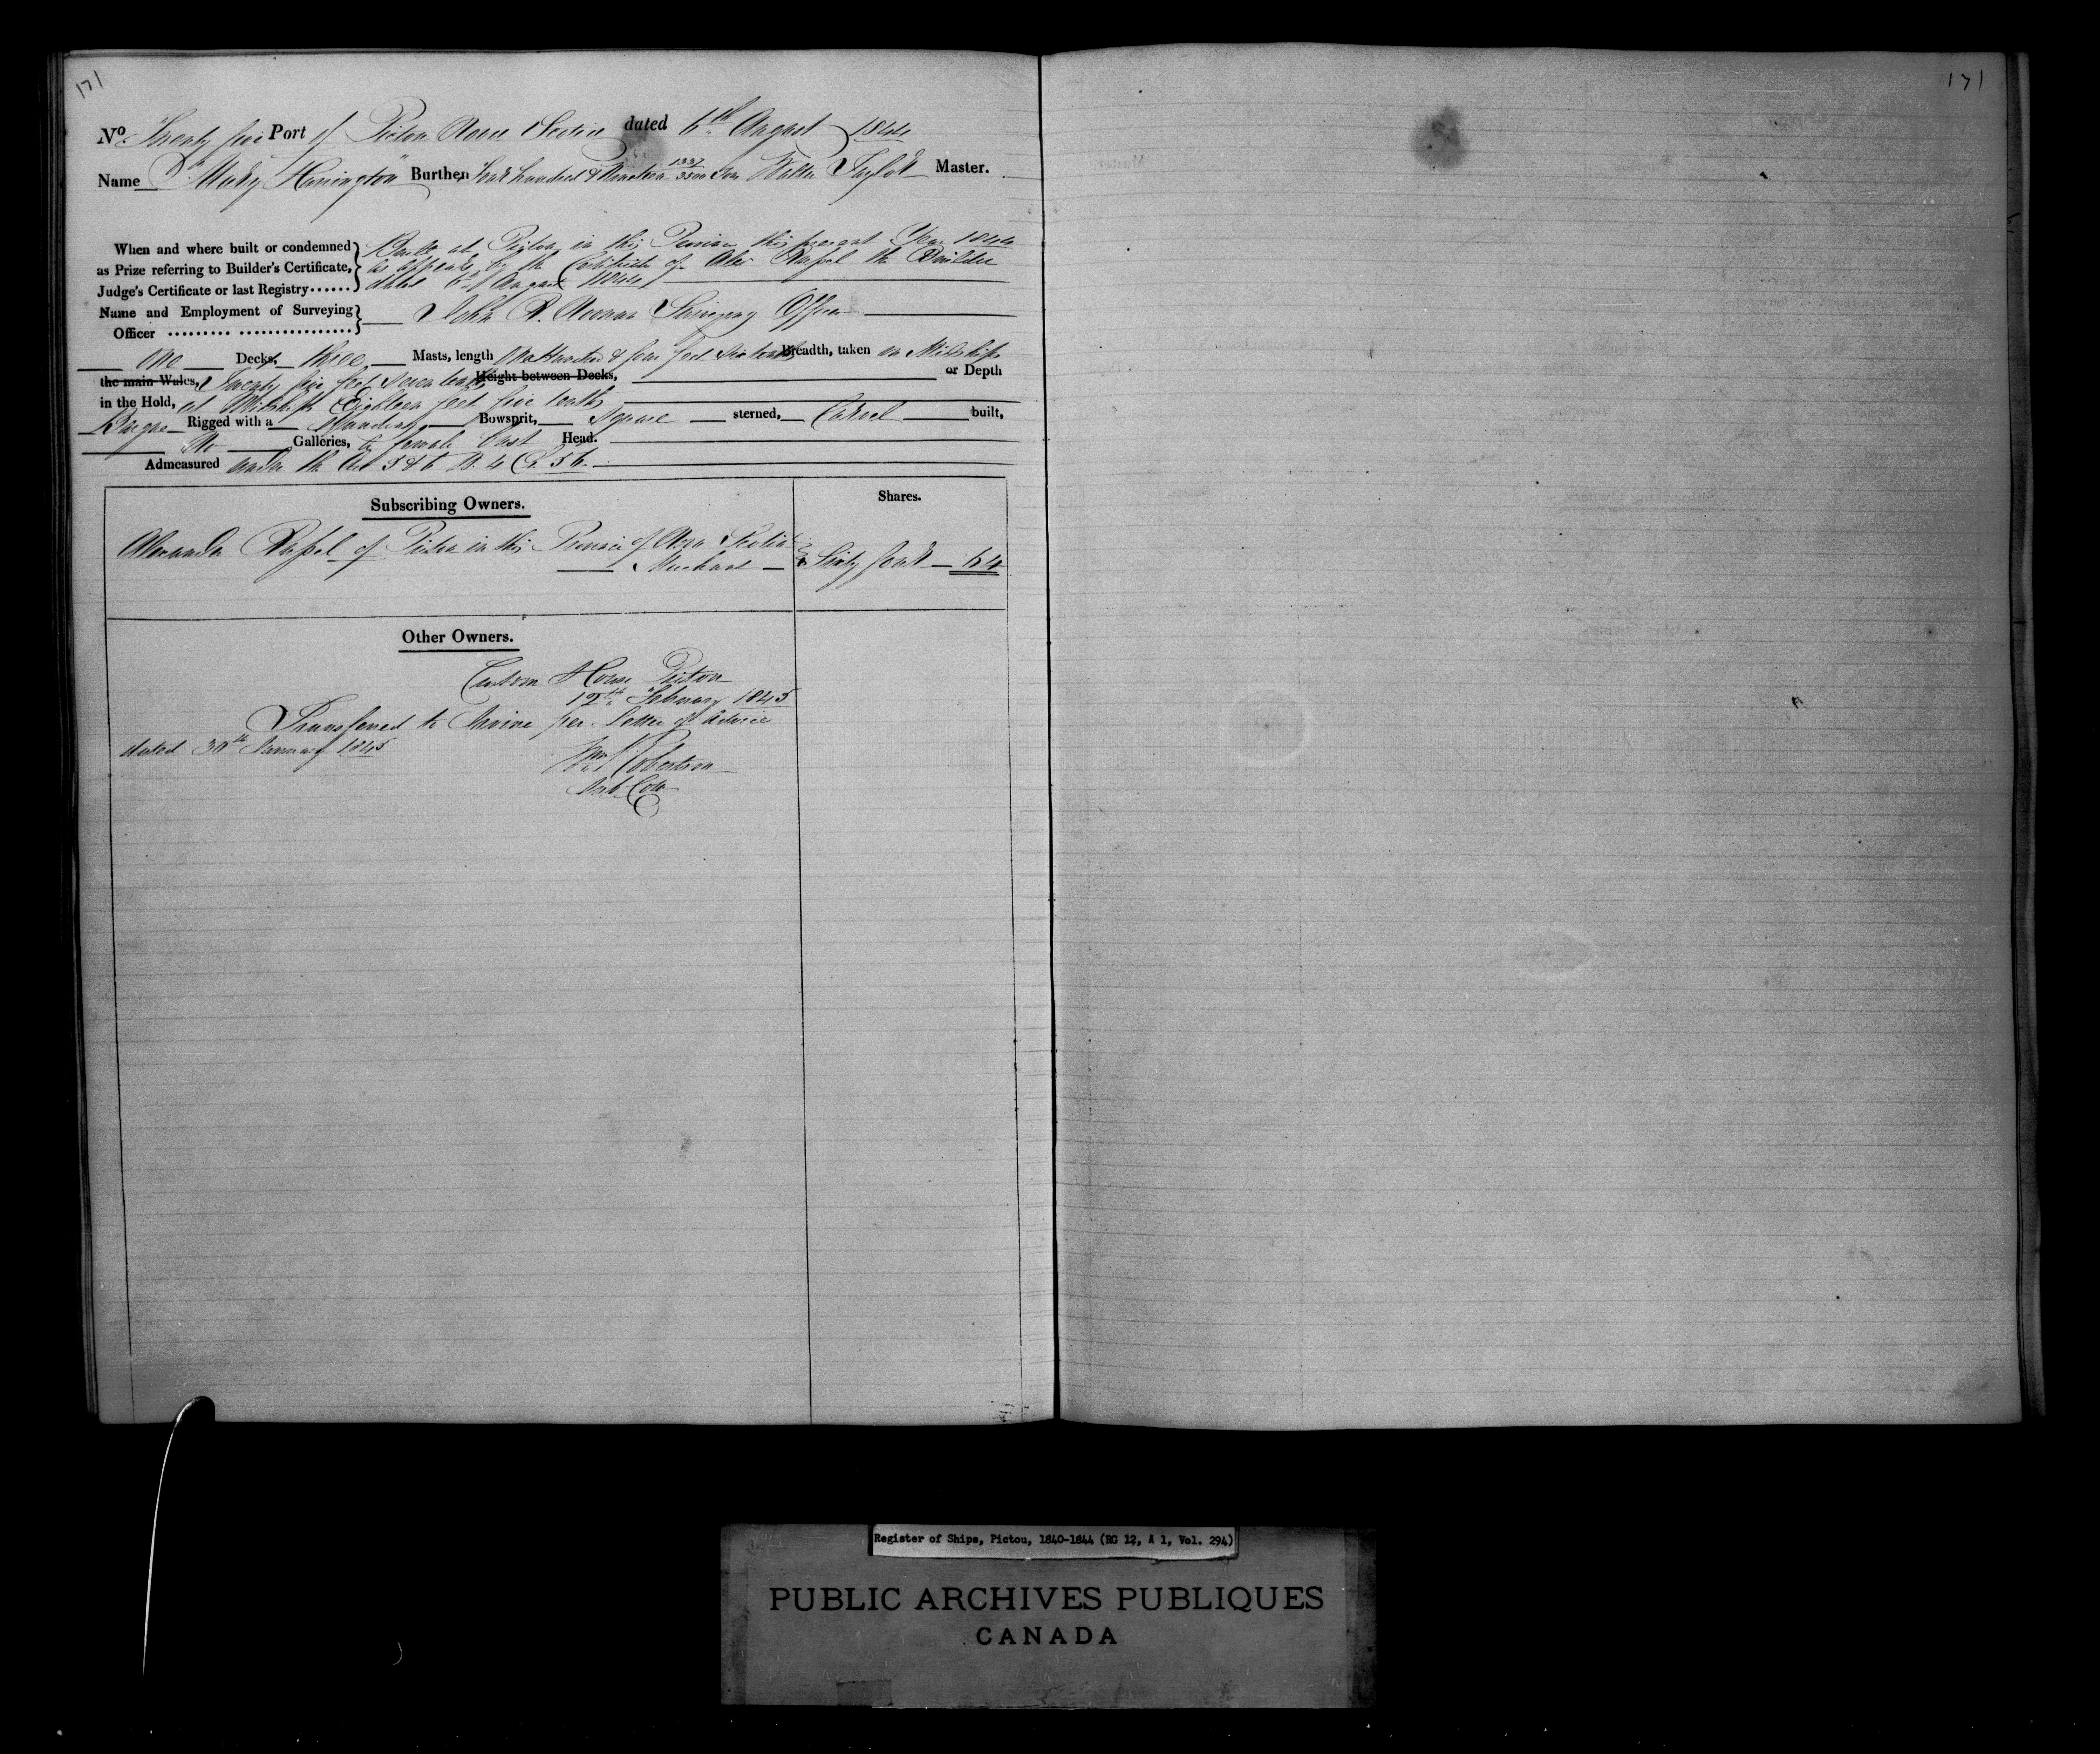 171
171
No. Twenty five Port of Pictou Nova Scotia dated 6th August 1844
Name "Mary Harrington" Burthen Four hundred & Nineteen 1337/3500 Tons Walter Taylor Master.
When and where built or condemned Built at Pictou in this Province this present Year 1844
as Prize referring to Builder's Certificate, as appears by the Certificate of Alex Russel the Builder
Judge's Certificate or last Registry...... dated 6th August 1844
Name and Employment of Surveying John R. Noonan Surveying Officer
Officer
One Decks, three Masts, length One Hundred & four feet six tenths Breadth, taken in Midships
the main Wales, Twenty five feet seven tenths Height between Decks, or Depth
in the Hold, at Midships Eighteen feet five tenths
Barque Rigged with a Standing Bowsprit, Square sterned, Carvel built,
No Galleries, & female bust Head.
Admeasured under the Act 5 & 6 W. 4 C. 56.
Subscribing Owners.
Shares.
Alexander Russel of Pictou in this Province of Nova Scotia
Merchant Sixty four 64
Other Owners.
Custom House Pictou
12th February 1845
Transferred to Irvine per letter of advice
dated 30th January 1845
Robertson
Sub Coll
Register of Ships, Pictou, 1840-1844 (RG 12, A 1, Vol. 294)
PUBLIC ARCHIVES PUBLIQUES
CANADA